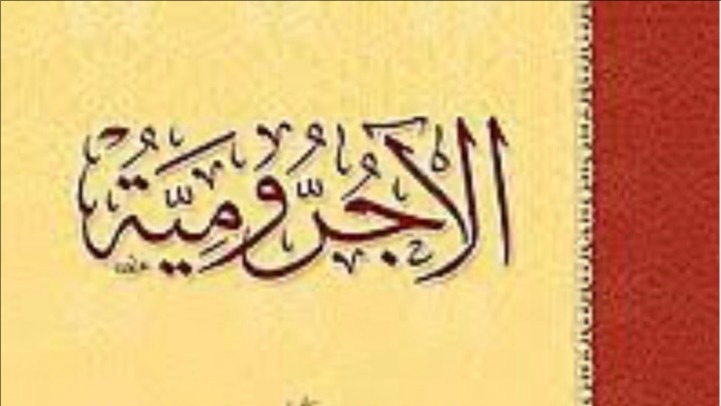 الآجُرُّومِيَّةُ